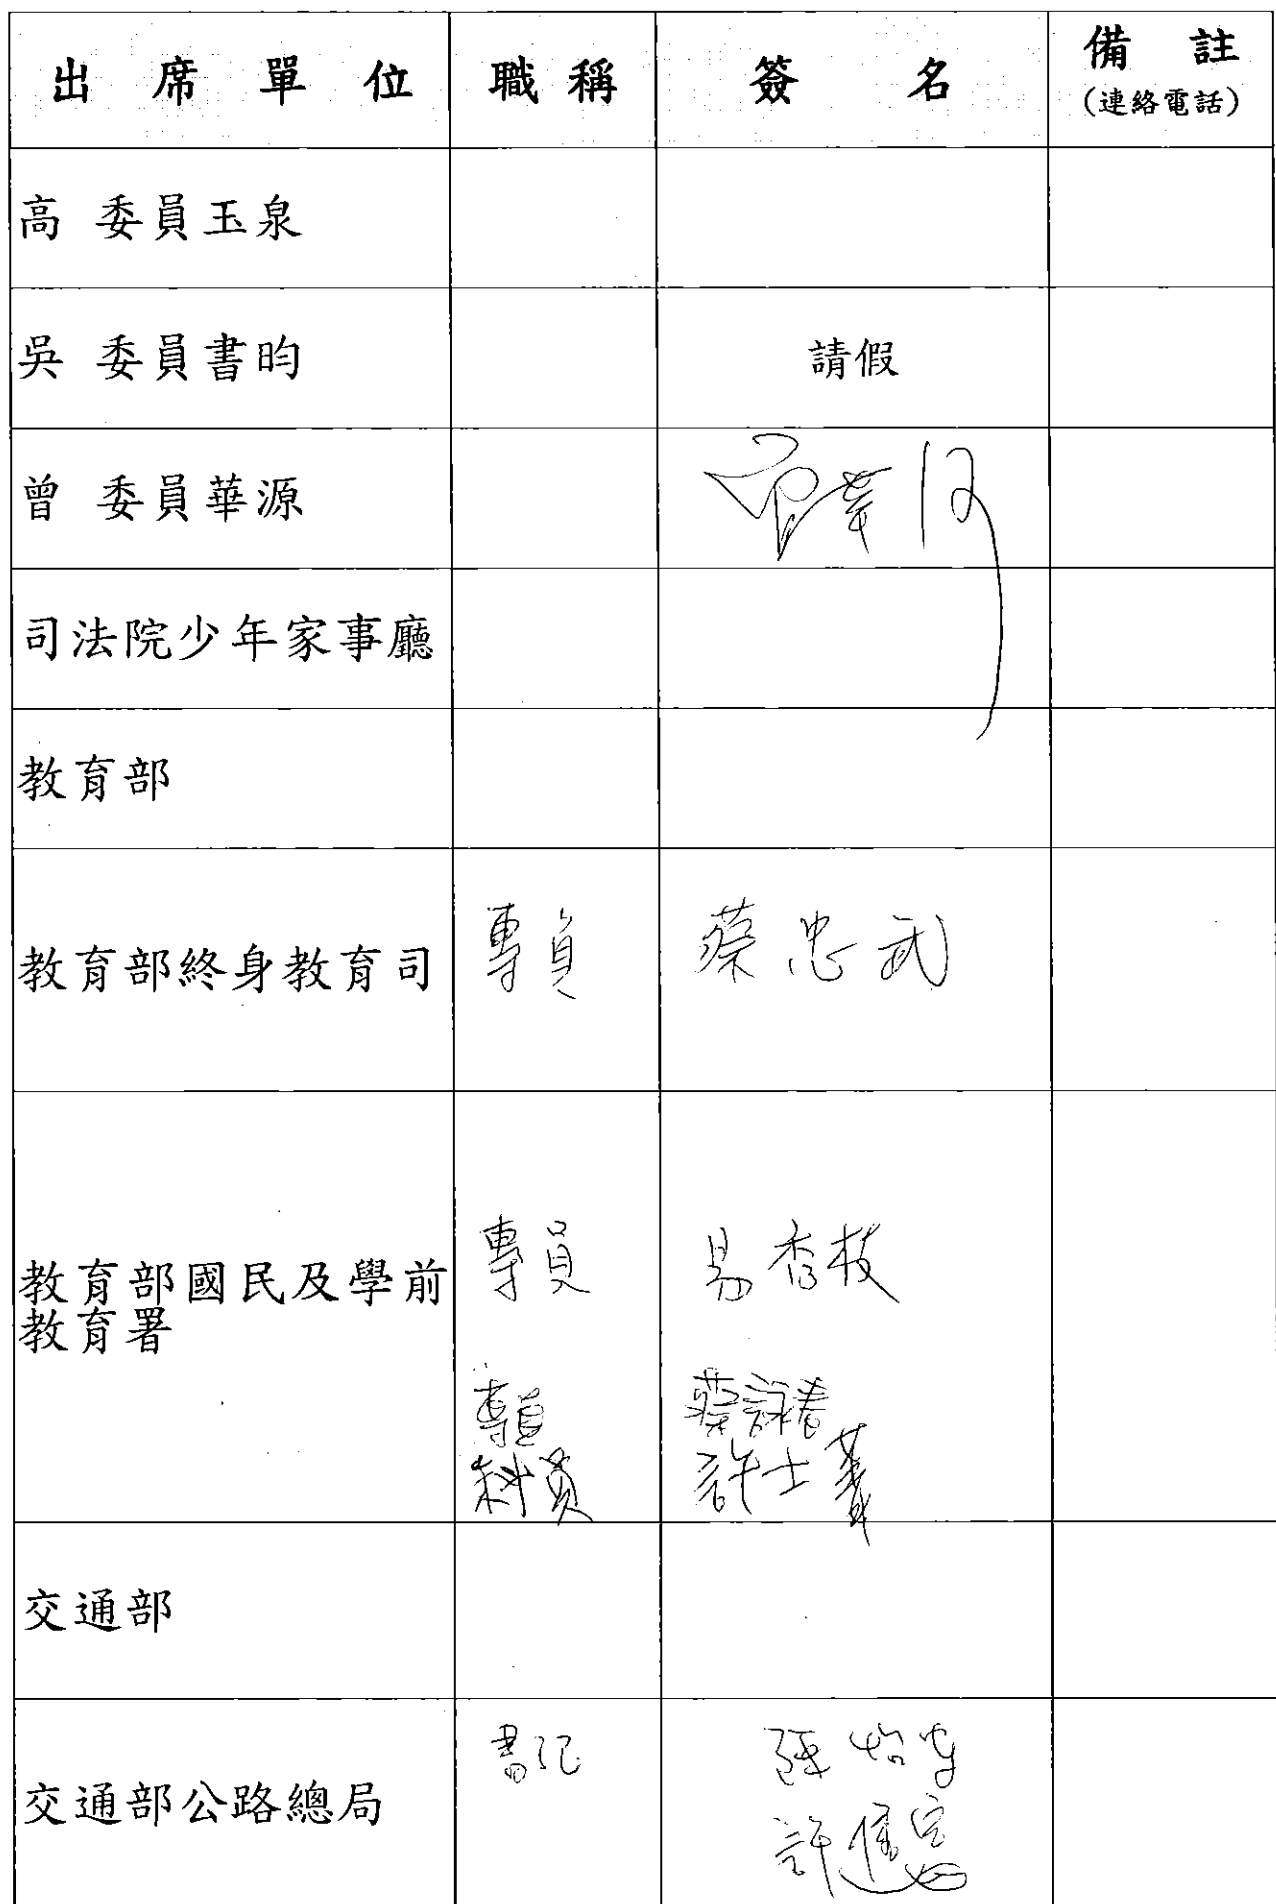 出席單位 職稱 簽名 備註
(連絡電話)
高 委員玉泉
吳 委員書昀 請假
曾 委員華源 曾華源
司法院少年家事廳
教育部
教育部終身教育司 專員 蔡忠武
教育部國民及學前
教育署
專員 易秀枝
專員 蔡詠春
科員 許士菁
交通部
交通部公路總局
書記